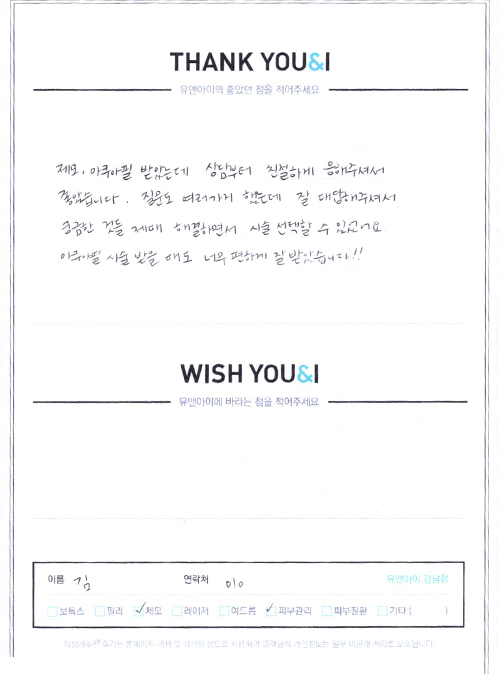 THANK YOU&I
유앤아이의 좋았던 점을 적어주세요
제모, 아쿠아필 받았는데 상담부터 친절하게 응해주셔서
좋았습니다. 질문도 여러가지 했는데 잘 대답해주셔서
궁금한 것들 제때 해결하면서 시술 선택할 수 있었어요
아쿠아필 시술 받을 때도 너무 편하게 잘 받았습니다!!
WISH YOU&I
유앤아이에 바라는 점을 적어주세요
이름 김 연락처 010 유앤아이 강남점
보톡스 필러 제모 레이저 여드름 피부관리 피부질환 기타 ( )
후기는 홈페이지 게재 및 마케팅 용도로 사용되며 고객님의 개인정보는 일부 비공개 처리로 보호합니다.